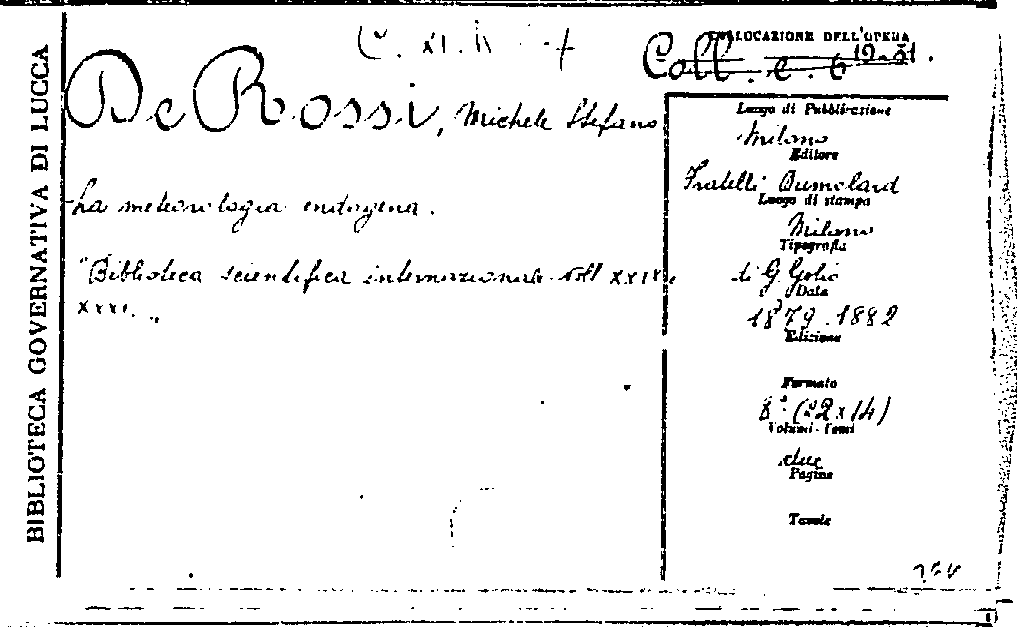 BIBLIOTECA GOVERNATIVA DI LUCCA
COLLOCAZIONE DELL'OPERA
Coll. e. 6 19-31.
De Rossi, Michele Stefano
La meteorologia endogena.
"Biblioteca scientifica internazionale voll XXIX e
XXXI. "
Luogo di Pubblicazione
Milano
Editore
Fratelli Dumolard
Luogo di stampa
Milano
Tipografia
di G Golio
Data
1879-1882
Edizione
Formato
8° (22x14)
Volumi-Tomi
due
Pagine
Tavole